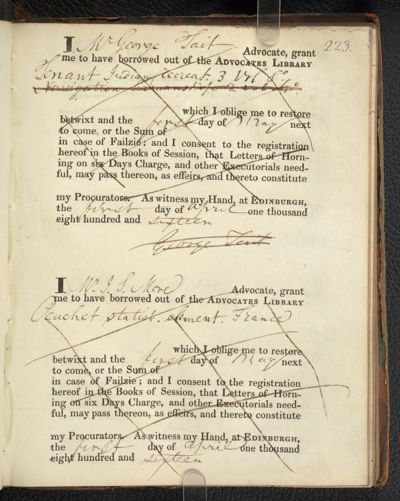 223.
I Mr George Tait Advocate, grant
me to have borrowed out of the ADVOCATES LIBRARY
Tenant Indian recreat. 3 Vol 8vo
Navigation 2 Vol 8vo
which I oblige me to restore
betwixt and the first day of May next
to come, or the Sum of
in case of Failzie; and I consent to the registration
hereof in the Books of Session, that Letters of Horn-
ing on six Days Charge, and other Executorials need-
ful, may pass thereon, as effeirs, and thereto constitute
my Procurators. As witness my Hand, at EDINBURGH,
the first day of April one thousand
eight hundred and sixteen
George Tait
I Mr J. S. More Advocate, grant
me to have borrowed out of the ADVOCATES LIBRARY
Peuchet statist. element. France
which I oblige me to restore
betwixt and the first day of May next
to come, or the Sum of
in case of Failzie; and I consent to the registration
hereof in the Books of Session, that Letters of Horn-
ing on six Days Charge, and other Executorials need-
ful, may pass thereon, as effeirs, and thereto constitute
my Procurators. As witness my Hand, at EDINBURGH,
the first day of April one thousand
eight hundred and sixteen